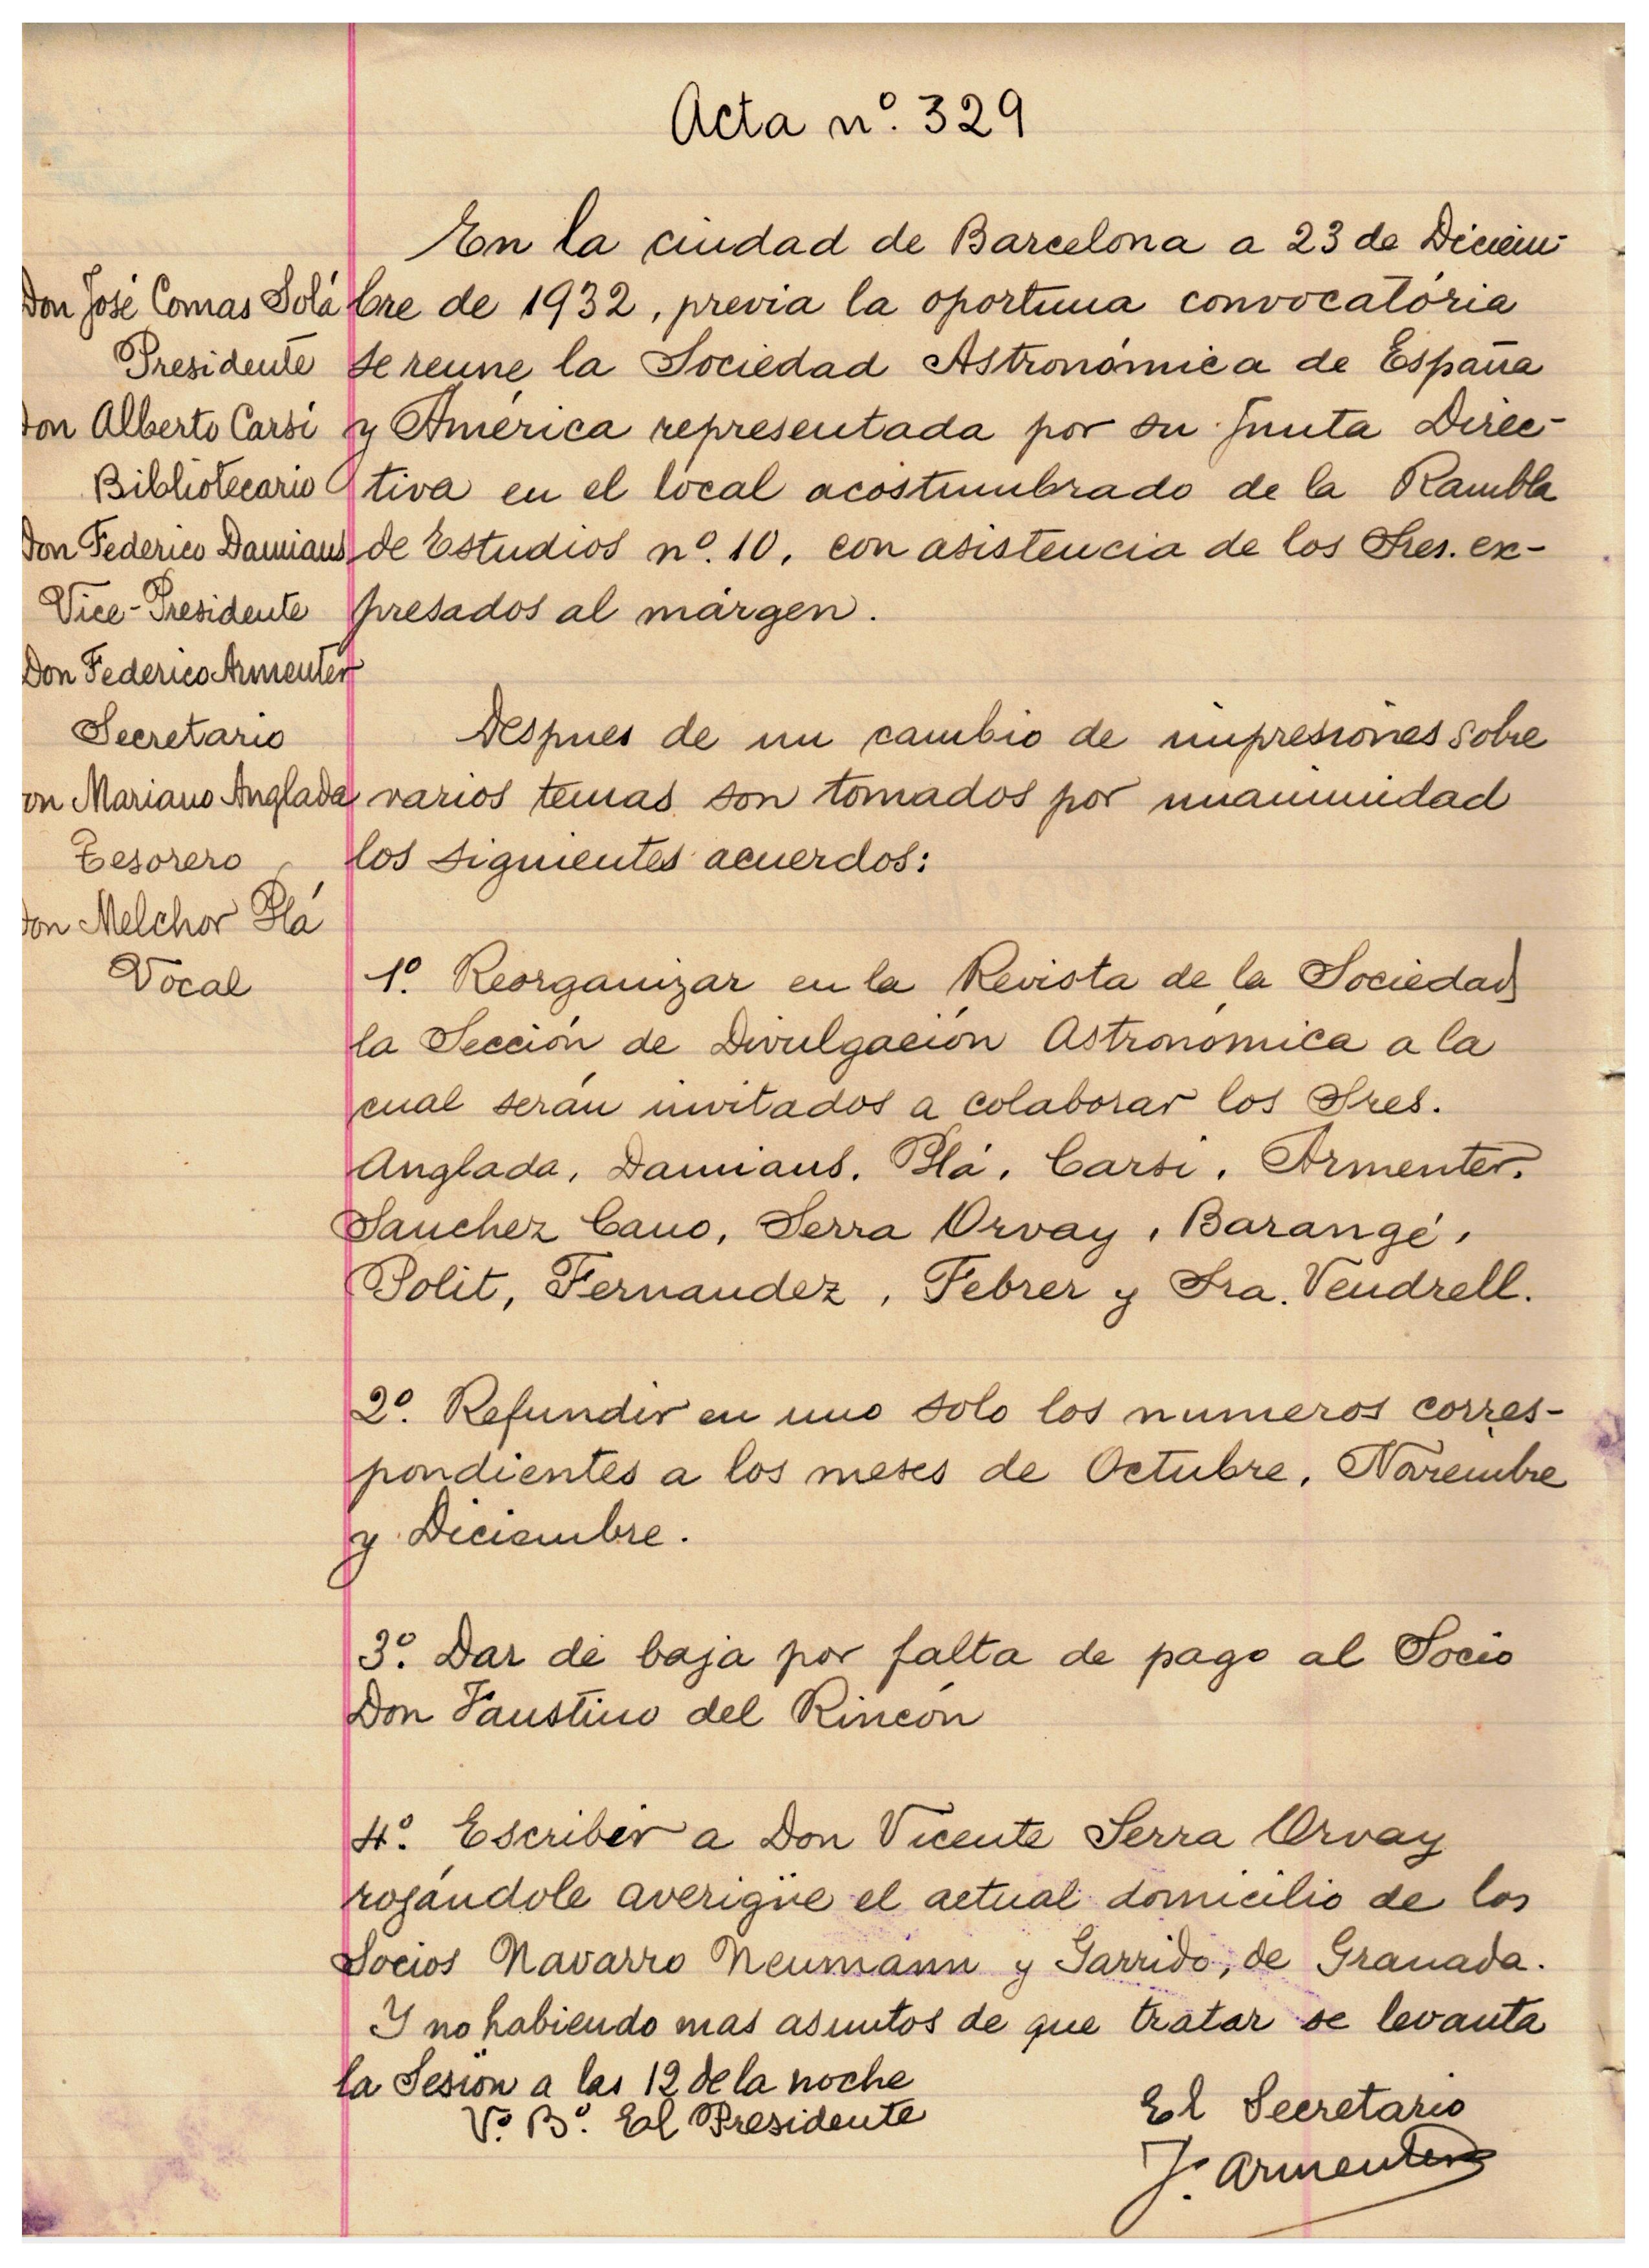 Acta nº. 329
Don José Comas Solá
Presidente
Don Alberto Carsi
Bibliotecario
Don Federico Damians
Vice-Presidente
Don Federico Armenter
Secretario
on Mariano Anglada
Tesorero
Don Melchor Plá
Vocal
En la ciudad de Barcelona a 23 de Diciem-
bre de 1932, previa la oportuna convocatória
se reune la Sociedad Astronómica de España
y América representada por su Junta Direc-
tiva en el local acostumbrado de la Rambla
de Estudios nº. 10, con asistencia de los Sres. ex-
presados al márgen.
Despues de un cambio de impresiones sobre
varios temas son tomados por unanimidad
los siguientes acuerdos:
1º. Reorganizar en la Revista de la Sociedad
la Sección de Divulgación Astronómica a la
cual serán invitados a colaborar los Sres.
Anglada, Damians, Plá, Carsi, Armenter,
Sanchez Cano, Serra Orvay, Barangé,
Polit, Fernandez, Febrer y Sra. Vendrell.
2º. Refundir en uno solo los numeros corres-
pondientes a los meses de Octubre, Noviembre
y Diciembre.
3º. Dar de baja por falta de pago al Socio
Don Faustino del Rincón
4º. Escribir a Don Vicente Serra Orvay
rogándole averigüe el actual domicilio de los
Socios Navarro Neumann y Garrido, de Granada.
Y no habiendo mas asuntos de que tratar se levanta
la Sesión a las 12 de la noche
Vº. Bº. El Presidente
El Secretario
F. Armenter